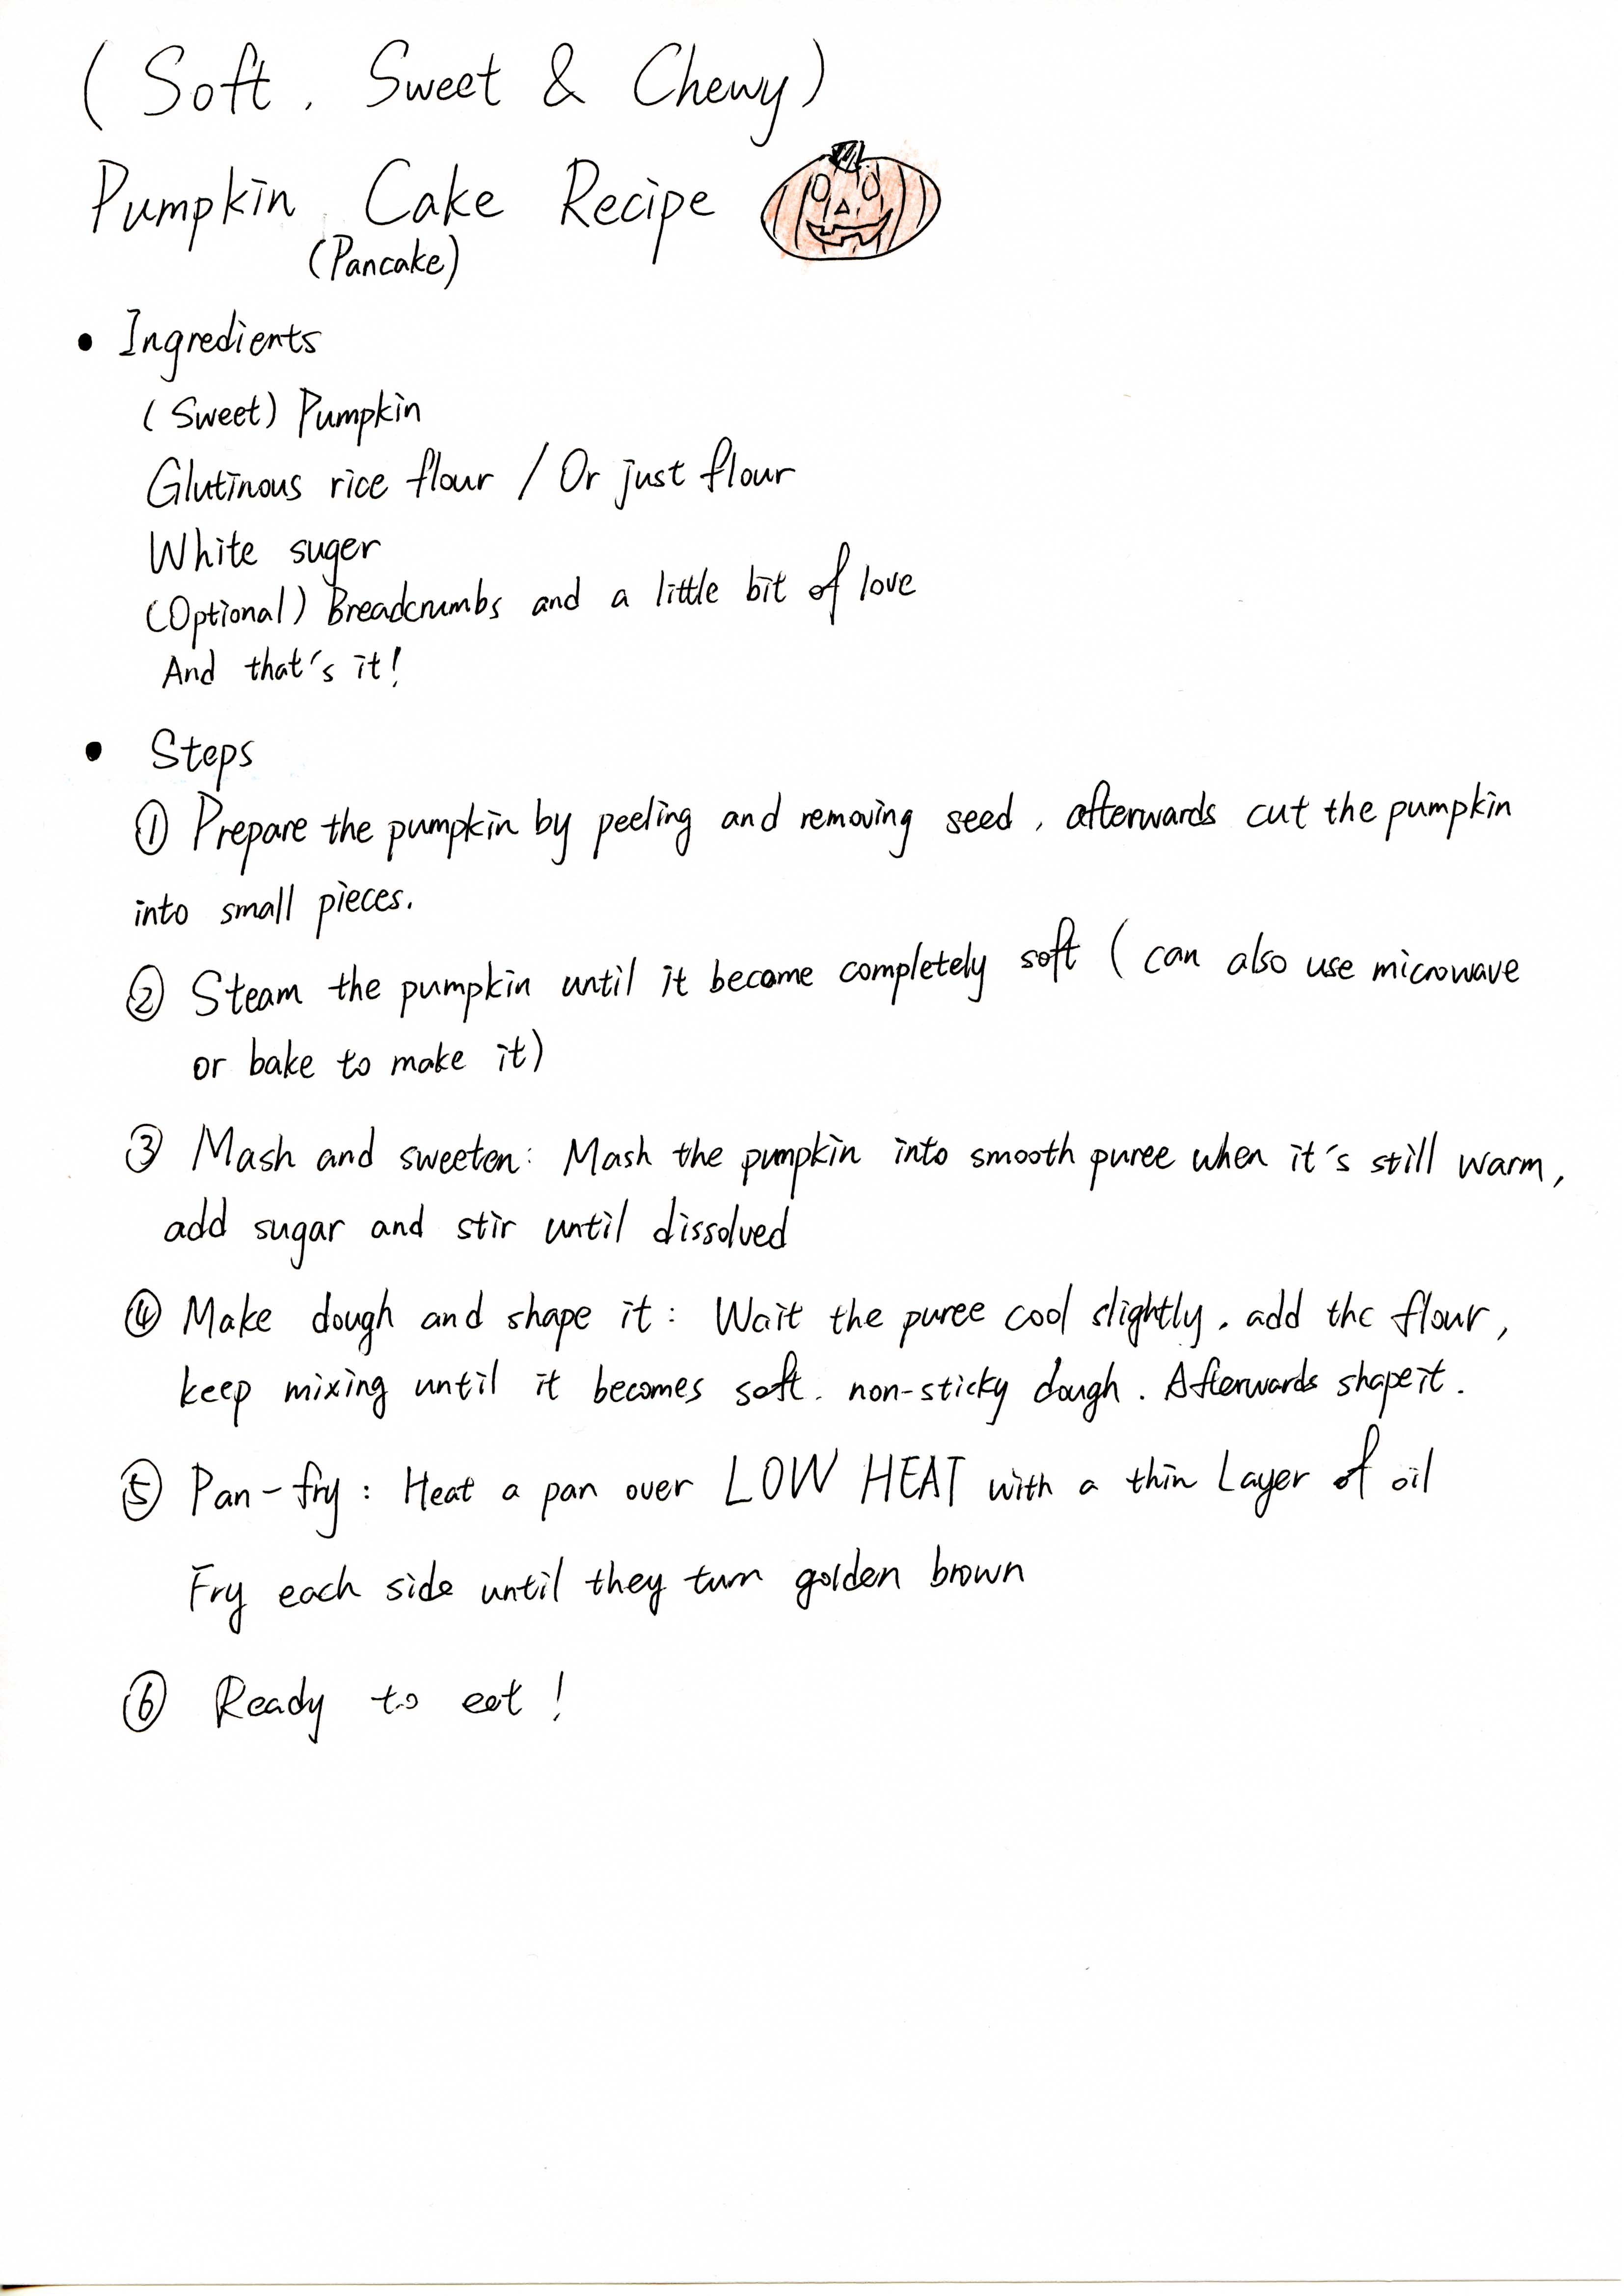 (Soft, Sweet & Chewy)
Pumpkin Cake Recipe
(Pancake)
• Ingredients
(Sweet) Pumpkin
Glutinous rice flour / Or just flour
White suger
(Optional) Breadcrumbs and a little bit of love
And that's it!
• Steps
① Prepare the pumpkin by peeling and removing seed, afterwards cut the pumpkin
into small pieces.
② Steam the pumpkin until it become completely soft (can also use microwave
or bake to make it)
③ Mash and sweeten: Mash the pumpkin into smooth puree when it's still warm,
add sugar and stir until dissolved
④ Make dough and shape it: Wait the puree cool slightly, add the flour,
keep mixing until it becomes soft. non-sticky dough. Afterwards shape it.
⑤ Pan-fry: Heat a pan over LOW HEAT with a thin Layer of oil
Fry each side until they turn golden brown
⑥ Ready to eat!